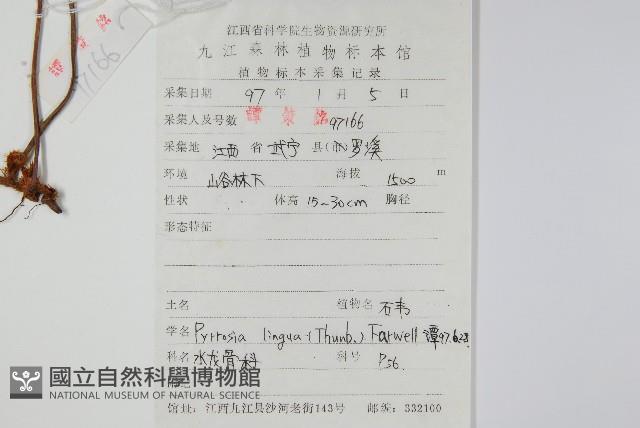 江西省科学院生物资源研究所
九江森林植物标本馆
植物标本采集记录
采集日期 97 年 1 月 5 日
采集人及号数 譚策銘 97166
采集地 江西 省 武宁 县(市) 罗溪
环境 山谷林下 海拔 1500 m
性状 体高 15~30cm 胸径
形态特征
土名 植物名 石韦
学名 Pyrrosia lingua (Thunb.) Farwell 譚97.6.28
科名 水龙骨科 科号 P56
國立自然科學博物館
NATIONAL MUSEUM OF NATURAL SCIENCE
馆址: 江西九江县沙河老街143号 邮编: 332100
97166